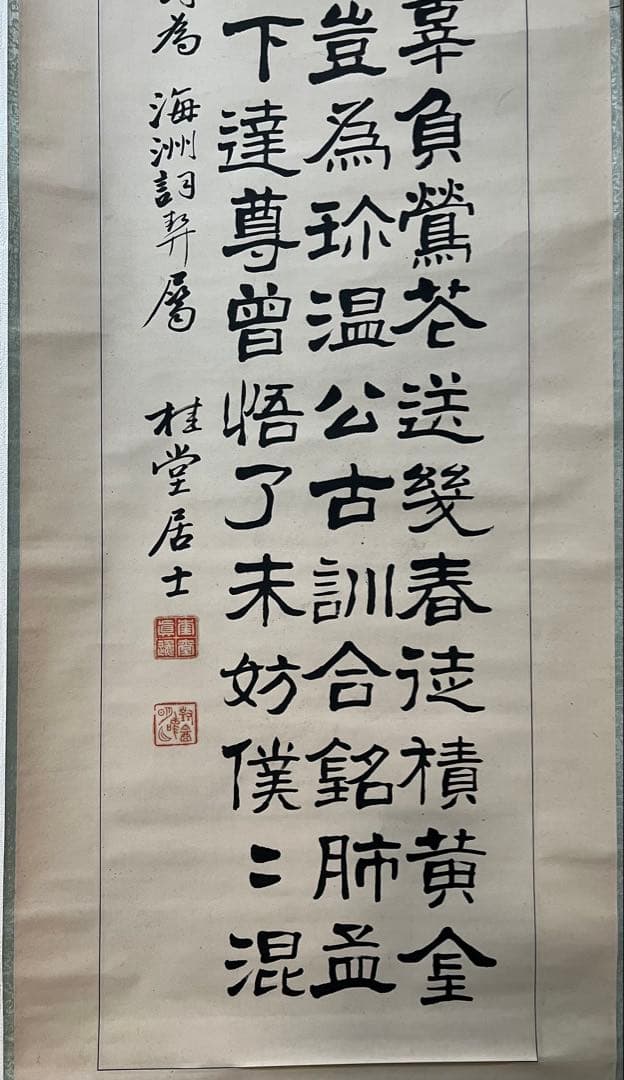 辜負鶯花送幾春徒積黃金
豈為珎溫公古訓合銘肺孟
下達尊曾悟了未妨僕〻混
為 海洲詞契屬 桂堂居士